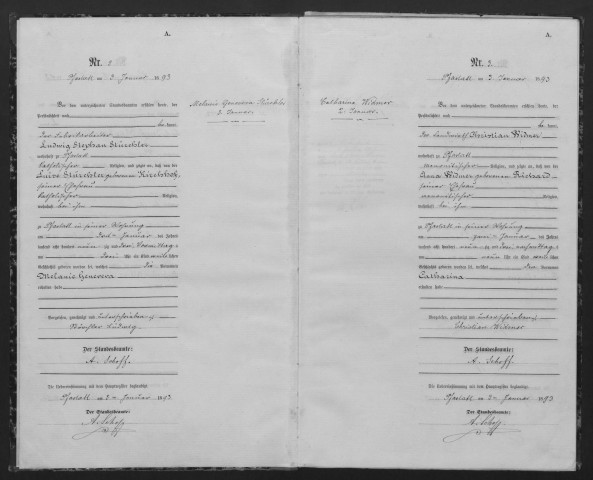 A.
Nr. 2
Pfastatt am 3. Januar 1893
Vor dem unterzeichneten Standesbeamten erschien heute, der
Persönlichkeit nach
kannt,
der Fabrikarbeiter
Ludwig Stephan Stürchler
wohnhaft zu Pfastatt
katholischer Religion, und zeigte an, daß von der
Luise Stürchler geborenen
seiner Ehefrau
katholischer Religion,
wohnhaft bei ihm
zu Pfastatt in seiner Wohnung
am Januar des Jahres
tausend acht hundert neunzig und drei Vormittags
um drei Uhr ein Kind weib liches
Geschlechts geboren worden sei, welches die Vornamen
Melanie Genoveva
erhalten habe
Vorgelesen, genehmigt und unterschrieben
Stürchler Ludwig
Der Standesbeamte:
A. Schoff.
Die Uebereinstimmung mit dem Hauptregister beglaubigt
Pfastatt am 3ten Januar 1893
Der Standesbeamte:
A. Schoff
Melanie Genoveva Stürchler
3. Januar.
Catharina Widmer
2. Januar.
A.
Nr. 3.
Pfastatt am 3. Januar 1893
Vor dem unterzeichneten Standesbeamten erschien heute, der
Persönlichkeit nach
kannt,
der Landwirth Christian Widmer
wohnhaft zu Pfastatt
mennonitischer Religion, und zeigte an, daß von der
Anna Widmer geborenen
seiner Ehefrau
mennonitischer Religion,
wohnhaft bei ihm
zu Pfastatt in seiner Wohnung
am zwei Januar des Jahres
tausend acht hundert neunzig und drei
um neun Uhr ein Kind weib liches
Geschlechts geboren worden sei, welches den Vornamen
Catharina
erhalten habe
Vorgelesen, genehmigt und unterschrieben
Christian Widmer
Der Standesbeamte:
A. Schoff.
Die Uebereinstimmung mit dem Hauptregister beglaubigt
Pfastatt am 3ten Januar 1893
Der Standesbeamte:
A. Schoff